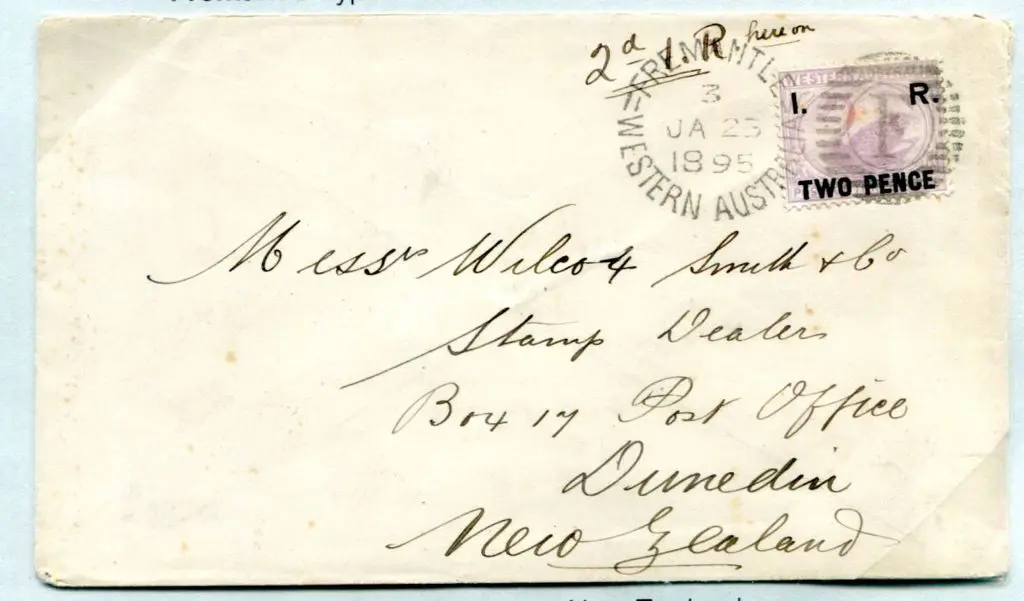 2d I.R here on
FREMANTLE
3
JA 23
1895
WESTERN AUSTRALIA
WESTERN AUSTRALIA
I. R.
1
TWO PENCE
Messrs Wilcox Smith & Co
Stamp Dealers
Box 17 Post Office
Dunedin
New Zealand